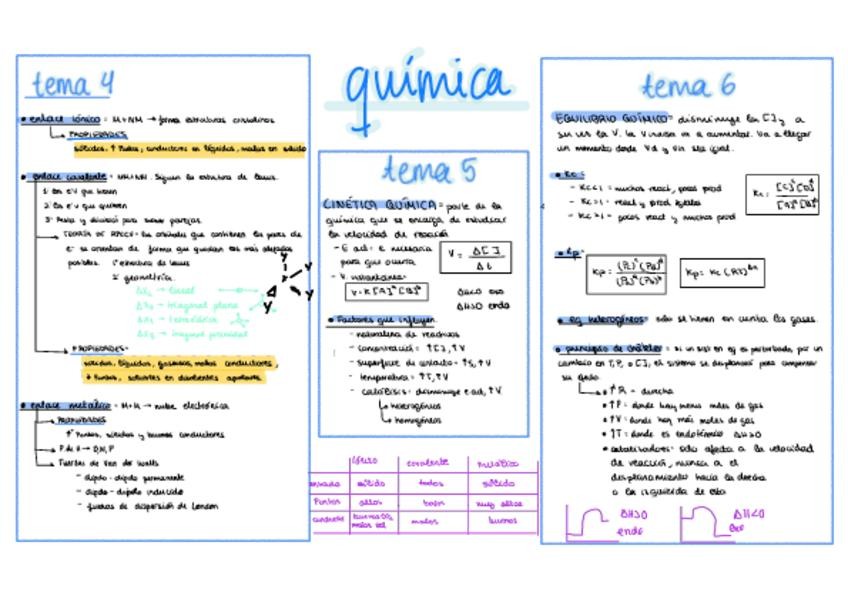 química
tema 4
• enlace iónico = M+NM → forma estructuras cristalinas
PROPIEDADES
sólidos, ↑ Ptos, conductores en líquidos, malos en sólido
• enlace covalente = NM+NM. Siguen la estructura de Lewis.
1º en eV que tienen
2º en eV que quieren
3º resto y divido para sacar parejas.
TEORÍA DE RPECV = los orbitales que contienen los pares de
e- se orientan de forma que quedan lo más alejados
posibles. 1º estructura de Lewis
2º geometría.
AX2 → lineal
AX3 → trigonal plana
AX4 → tetraédrica
PROPIEDADES
sólidos, líquidos, gaseosos, malos conductores,
• enlace metálico = M+M → nube electrónica
PROPIEDADES
↑ Puntos, sólidos y buenos conductores
P de H → O,N,F
Fuerzas de Van der Walls
- dipolo - dipolo permanente
- dipolo - dipolo inducido
- fuerzas de dispersión de London
tema 5
CINÉTICA QUÍMICA = parte de la
química que se encarga de estudiar
la velocidad de reacción
- E act = E necesaria
para que ocurra
V = Δ[ ] / Δt
- V. instantánea
V = K [A]ª [B]ᵇ
ΔH<0 exo
ΔH>0 endo
• Factores que influyen.
- naturaleza de reactivos
- concentración = ↑[ ], ↑V
- superficie de contacto = ↑S, ↑V
- temperatura = ↑T, ↑V
- catálisis = disminuye e.act, ↑V
heterogénea
homogénea
iónico covalente metálico
sólido todos sólido
Puntos altos bajos muy altos
malos buenos
tema 6
EQUILIBRIO QUÍMICO = disminuye la [ ] y a
su vez la V. la V inversa va a aumentar. Va a llegar
un momento donde Vd y Vin sea igual.
• Kc =
- Kc<1 = muchos react, pocos prod
- Kc=1 = react y prod iguales
- Kc>1 = pocos react y muchos prod
Kc = [C]ᶜ[D]ᵈ / [A]ª[B]ᵇ
• Kp =
Kp = (Pc)ᶜ(Pd)ᵈ / (Pa)ª(Pb)ᵇ
Kp = Kc (RT)Δn
• eq heterogéneos = solo se tienen en cuenta los gases.
• principio de châtelier = si un sist en eq es perturbado, por un
cambio en T, P, o [ ], el sistema se desplazará para compensar
su efecto
↑R → derecha
• ↑P = donde hay menos moles de gas
• ↑V = donde hay más moles de gas
• ↑T = donde es endotérmico ΔH>0
• catalizadores = solo afecta a la velocidad
de reacción, nunca a el
desplazamiento hacia la derecha
o la izquierda de esta
ΔH>0
endo
ΔH<0
exo